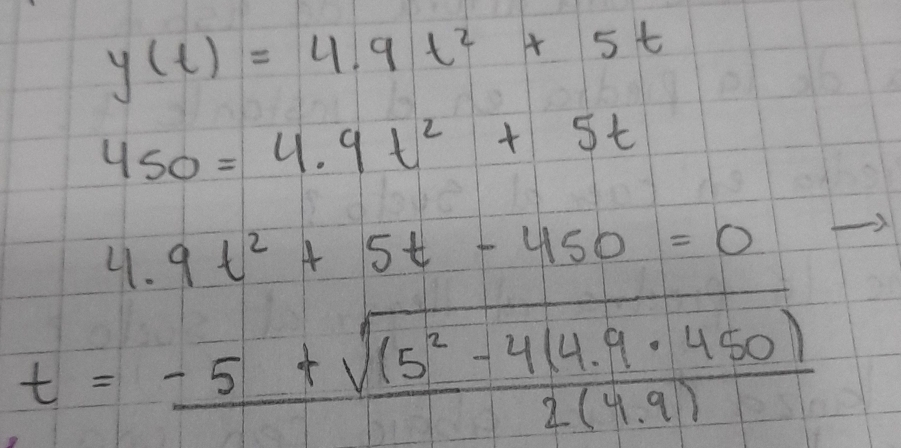 y(t) = 4.9 t² + 5t
450 = 4.9 t² + 5t
4.9 t² + 5t - 450 = 0 →
t = -5 + √(5² - 4(4.9 · 450) / 2(4.9)